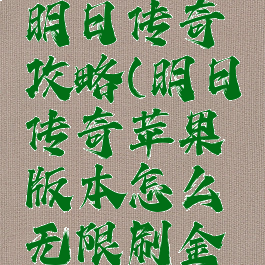 明日传奇
攻略(明日
传奇苹果
版本怎么
无限刷金